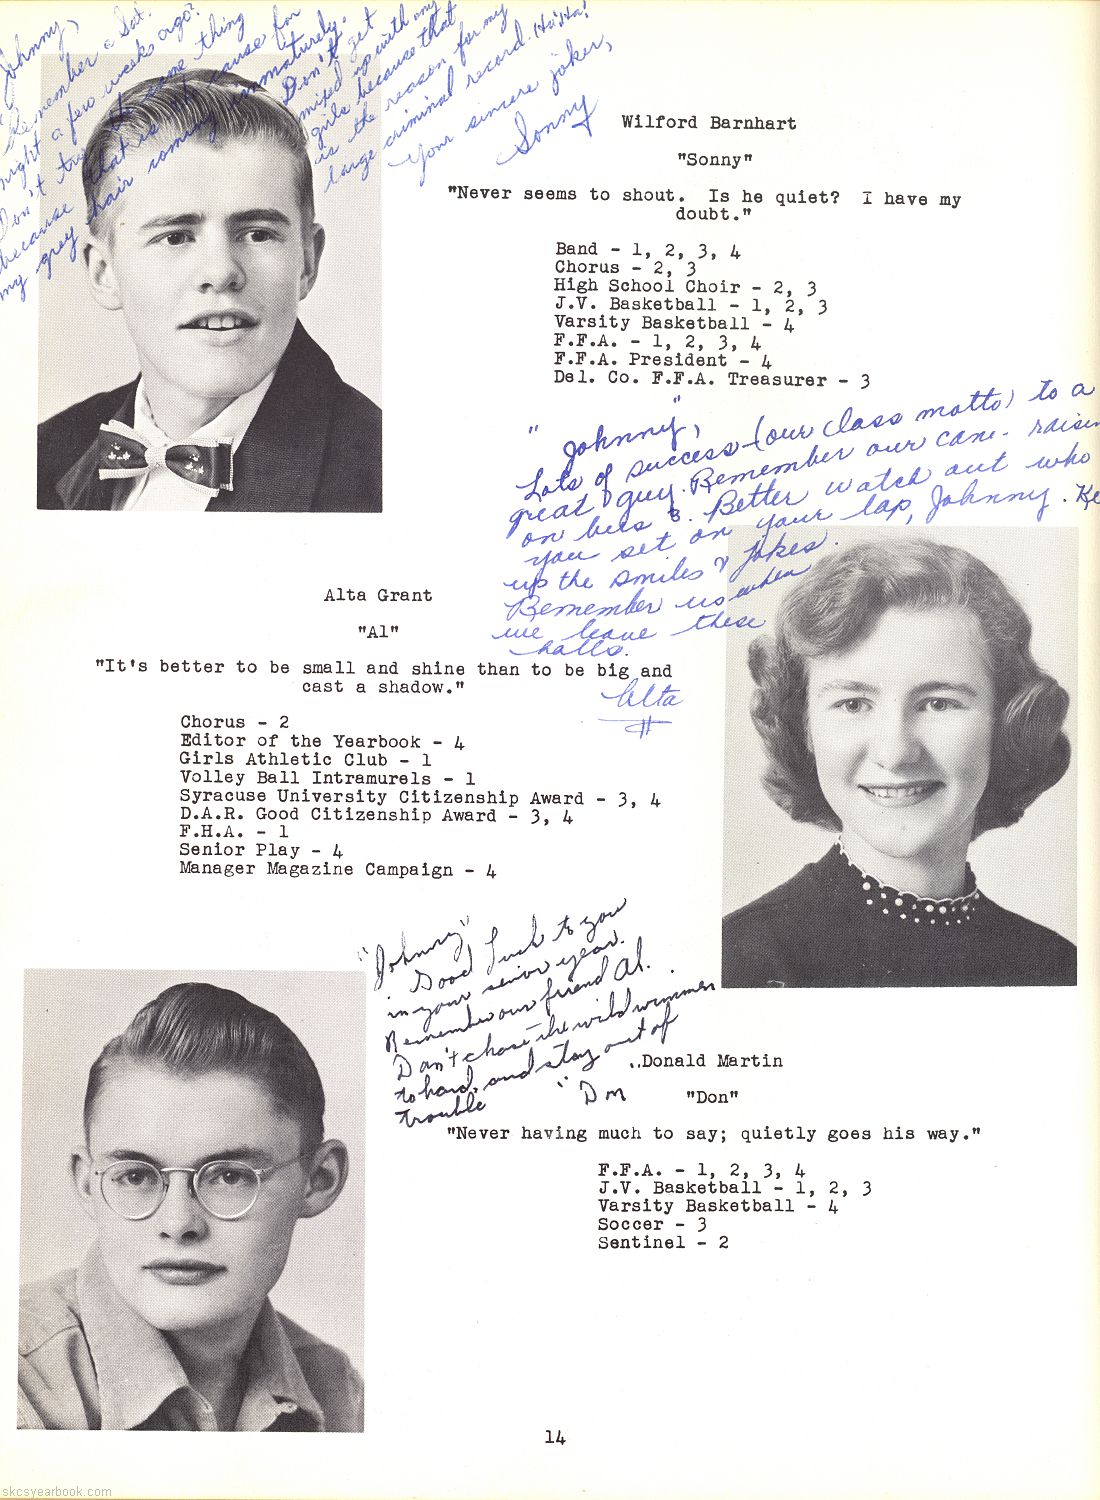 Johnny,
Remember a Sat.
night a few weeks ago?
Don't try the same thing
because that is the cause for
my grey hair coming immaturely.
Don't get
mixed up with any
girls because that
is the reason for my
large criminal record. (Ha! Ha!
Your sincere joker,
Sonny
Wilford Barnhart
"Sonny"
"Never seems to shout. Is he quiet? I have my
doubt."
Band - 1, 2, 3, 4
Chorus - 2, 3
High School Choir - 2, 3
J.V. Basketball - 1, 2, 3
Varsity Basketball - 4
F.F.A. - 1, 2, 3, 4
F.F.A. President - 4
Del. Co. F.F.A. Treasurer - 3
"Johnny",
Lots of success (our class motto) to a
great guy. Remember our cane-raisin
on bus 3. Better watch out who
you set on your lap, Johnny. Ke
up the smiles & jokes.
Remember us when
we leave these
halls.
Alta
Alta Grant
"Al"
"It's better to be small and shine than to be big and
cast a shadow."
Chorus - 2
Editor of the Yearbook - 4
Girls Athletic Club - 1
Volley Ball Intramurels - 1
Syracuse University Citizenship Award - 3, 4
D.A.R. Good Citizenship Award - 3, 4
F.H.A. - 1
Senior Play - 4
Manager Magazine Campaign - 4
"Johnny"
Good luck to you
in your senior year.
Remember our friend Al.
Don't chase the wild wimmen
to hard, and stay out of
trouble
"Don
..Donald Martin
"Don"
"Never having much to say; quietly goes his way."
F.F.A. - 1, 2, 3, 4
J.V. Basketball - 1, 2, 3
Varsity Basketball - 4
Soccer - 3
Sentinel - 2
14
skcsyearbook.com